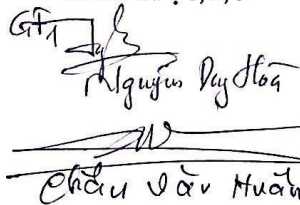 GT1
Nguyễn Duy Hoà
Châu Văn Huấn